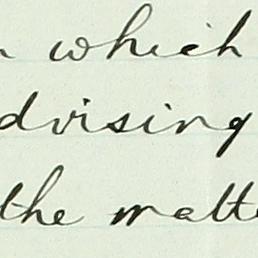 which
dvising
the matte